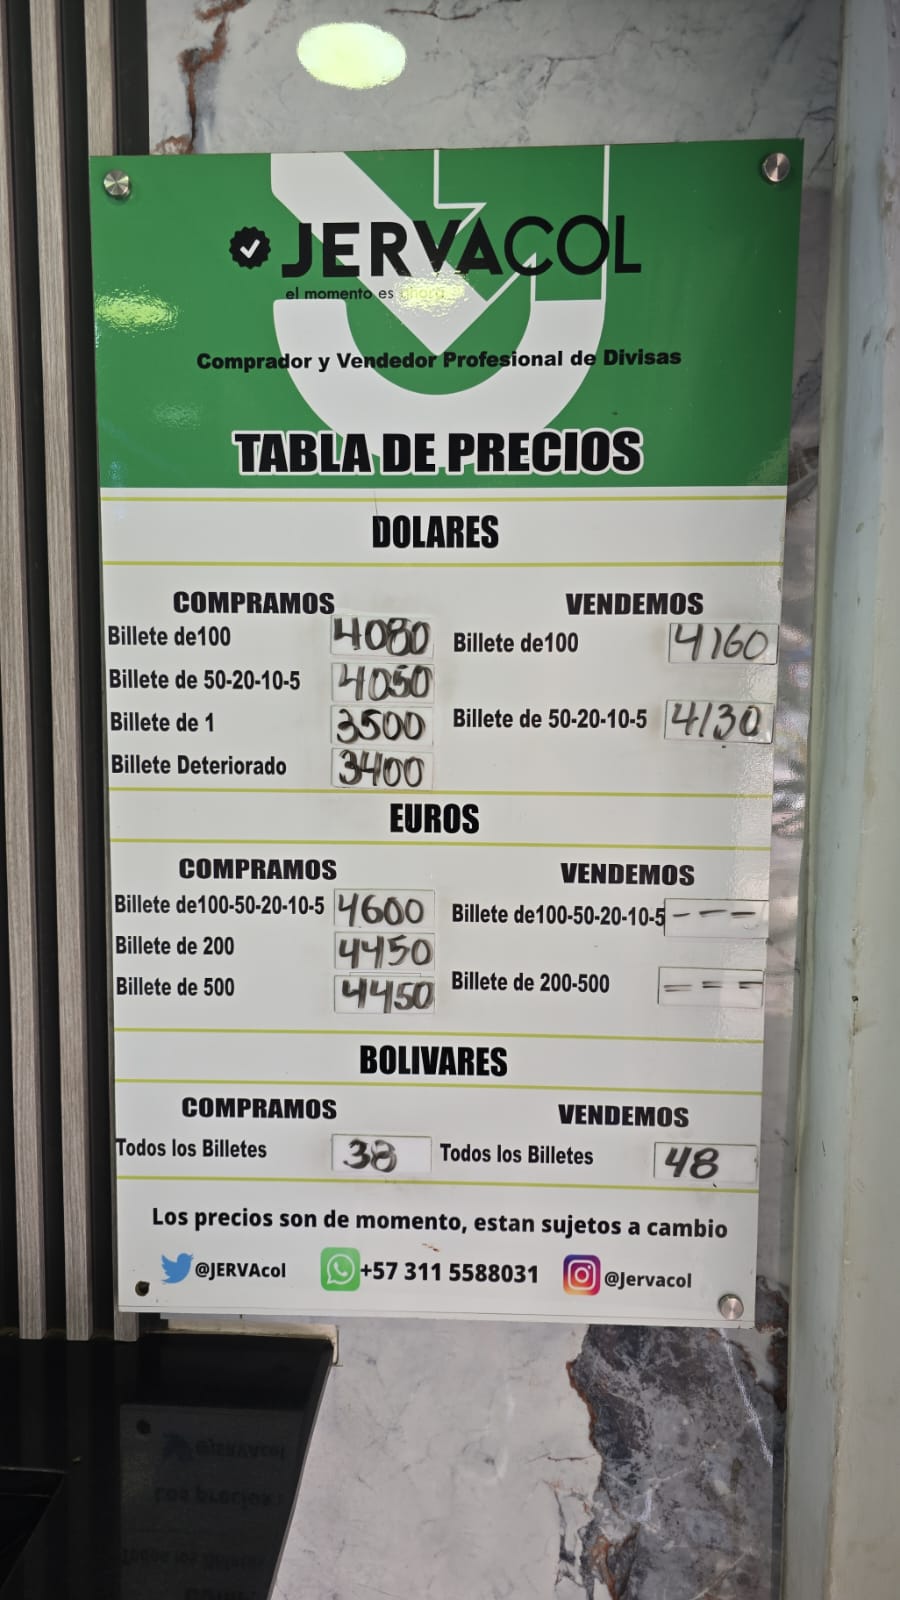 JERVACOL
el momento es ahora
Comprador y Vendedor Profesional de Divisas
TABLA DE PRECIOS
DOLARES
COMPRAMOS VENDEMOS
Billete de100 4080 Billete de100 4160
Billete de 50-20-10-5 4050
Billete de 1 3500 Billete de 50-20-10-5 4130
Billete Deteriorado 3400
EUROS
COMPRAMOS VENDEMOS
Billete de100-50-20-10-5 4600 Billete de100-50-20-10-5 ---
Billete de 200 4450
Billete de 500 4450 Billete de 200-500 ===
BOLIVARES
COMPRAMOS VENDEMOS
Todos los Billetes 38 Todos los Billetes 48
Los precios son de momento, estan sujetos a cambio
@JERVAcol +57 311 5588031 @Jervacol